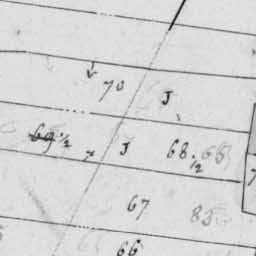 70 J
69 1/2 J 68 1/2 65
67 85
66